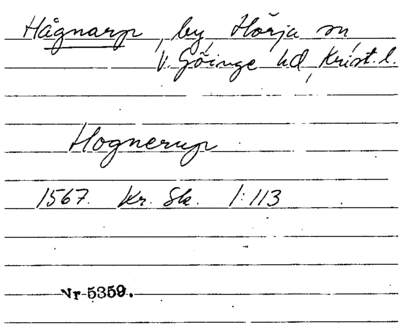 Hågnarp, by, Hörja sn,
V. Göinge hd, Krist. l.
Hognerup
1567. Kr. Sk. 1:113
Nr 5359.